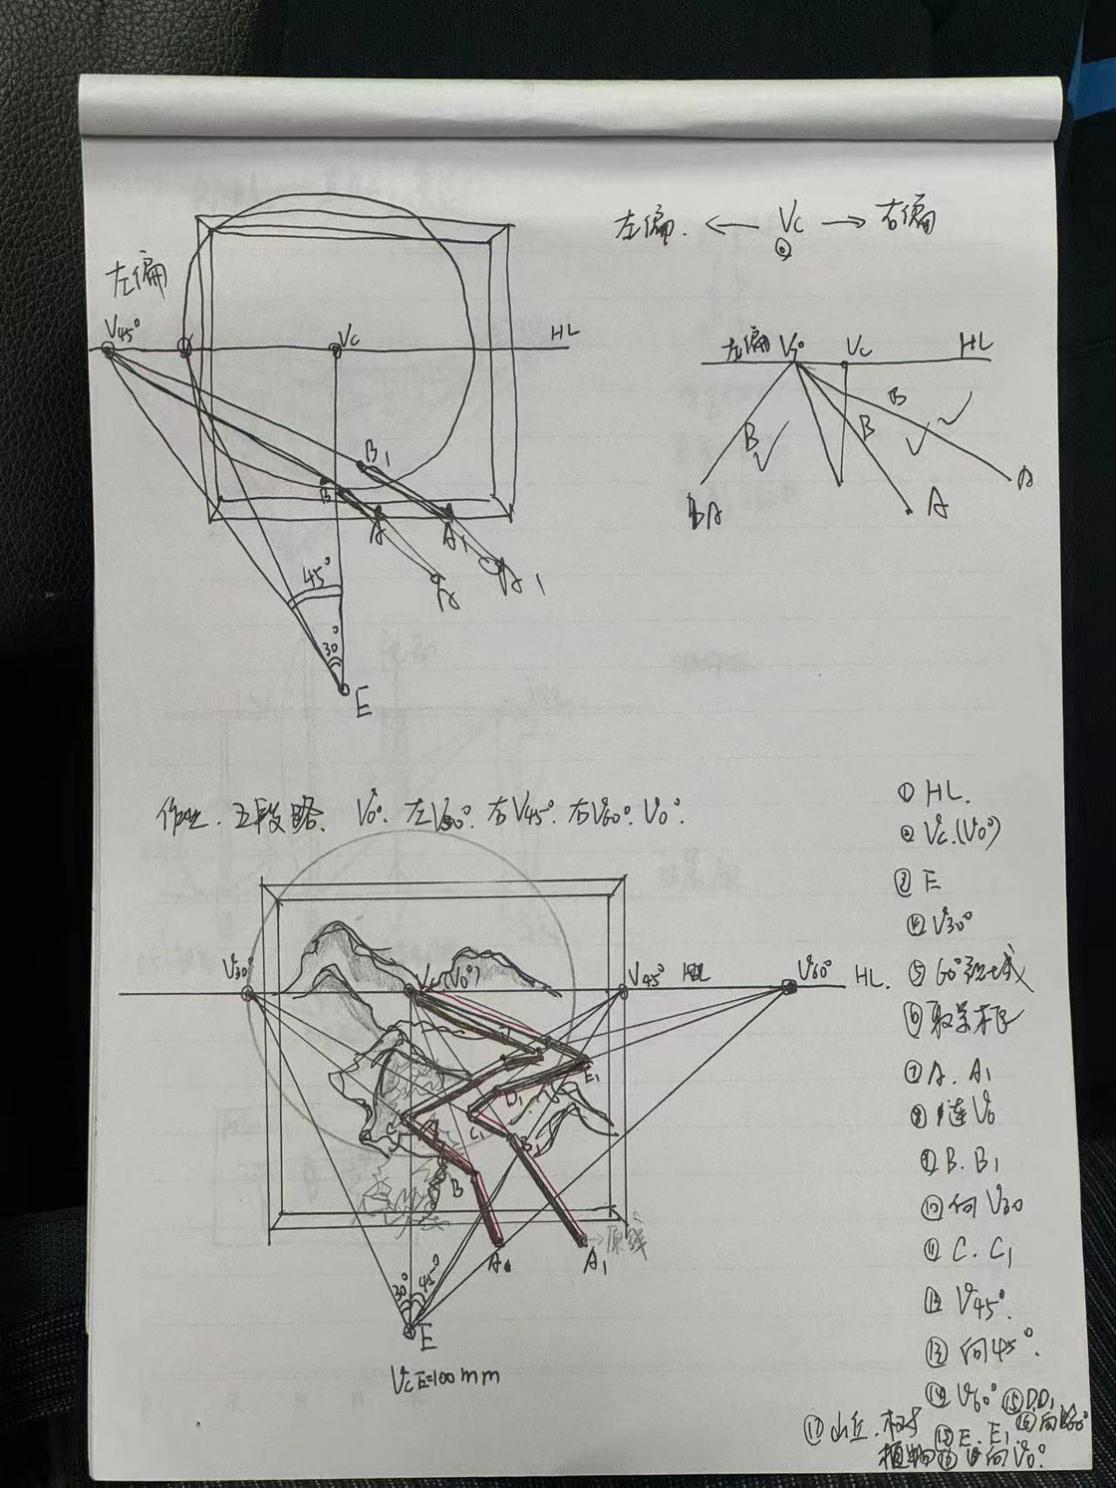 左偏 ← Vc → 右偏
②
左偏
V45°
Vc
HL
B1
B
A
A1
A
A1
45°
30°
E
左偏 V?° Vc HL
B
B
B
A
A
A
作业. 五段路. V0°. 左V30°. 右V45°. 右V60°. V0°.
V30°
Vc(V0°)
V45°
HL
V60°
HL.
E1
D1
C
C1
B
B1
A
A1
→原线
30°
45°
E
VcE=100mm
① HL.
② Vc.(V0°)
③ E
④ V30°
⑤ 60°视域
⑥ 取景框
⑦ A. A1
⑧ 连V0
⑨ B. B1
⑩ 向V30
⑪ C. C1
⑫ V45°.
⑬ 向45°.
⑭ V60° ⑮ D.D1
⑯ 向60°
⑰ 山丘. 树 ⑱ E. E1
植物 向V0°.